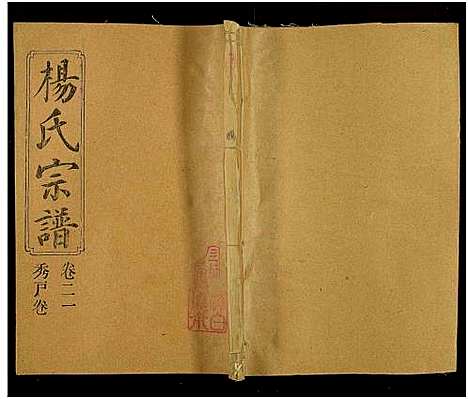 楊氏宗譜
卷二一
秀戶卷